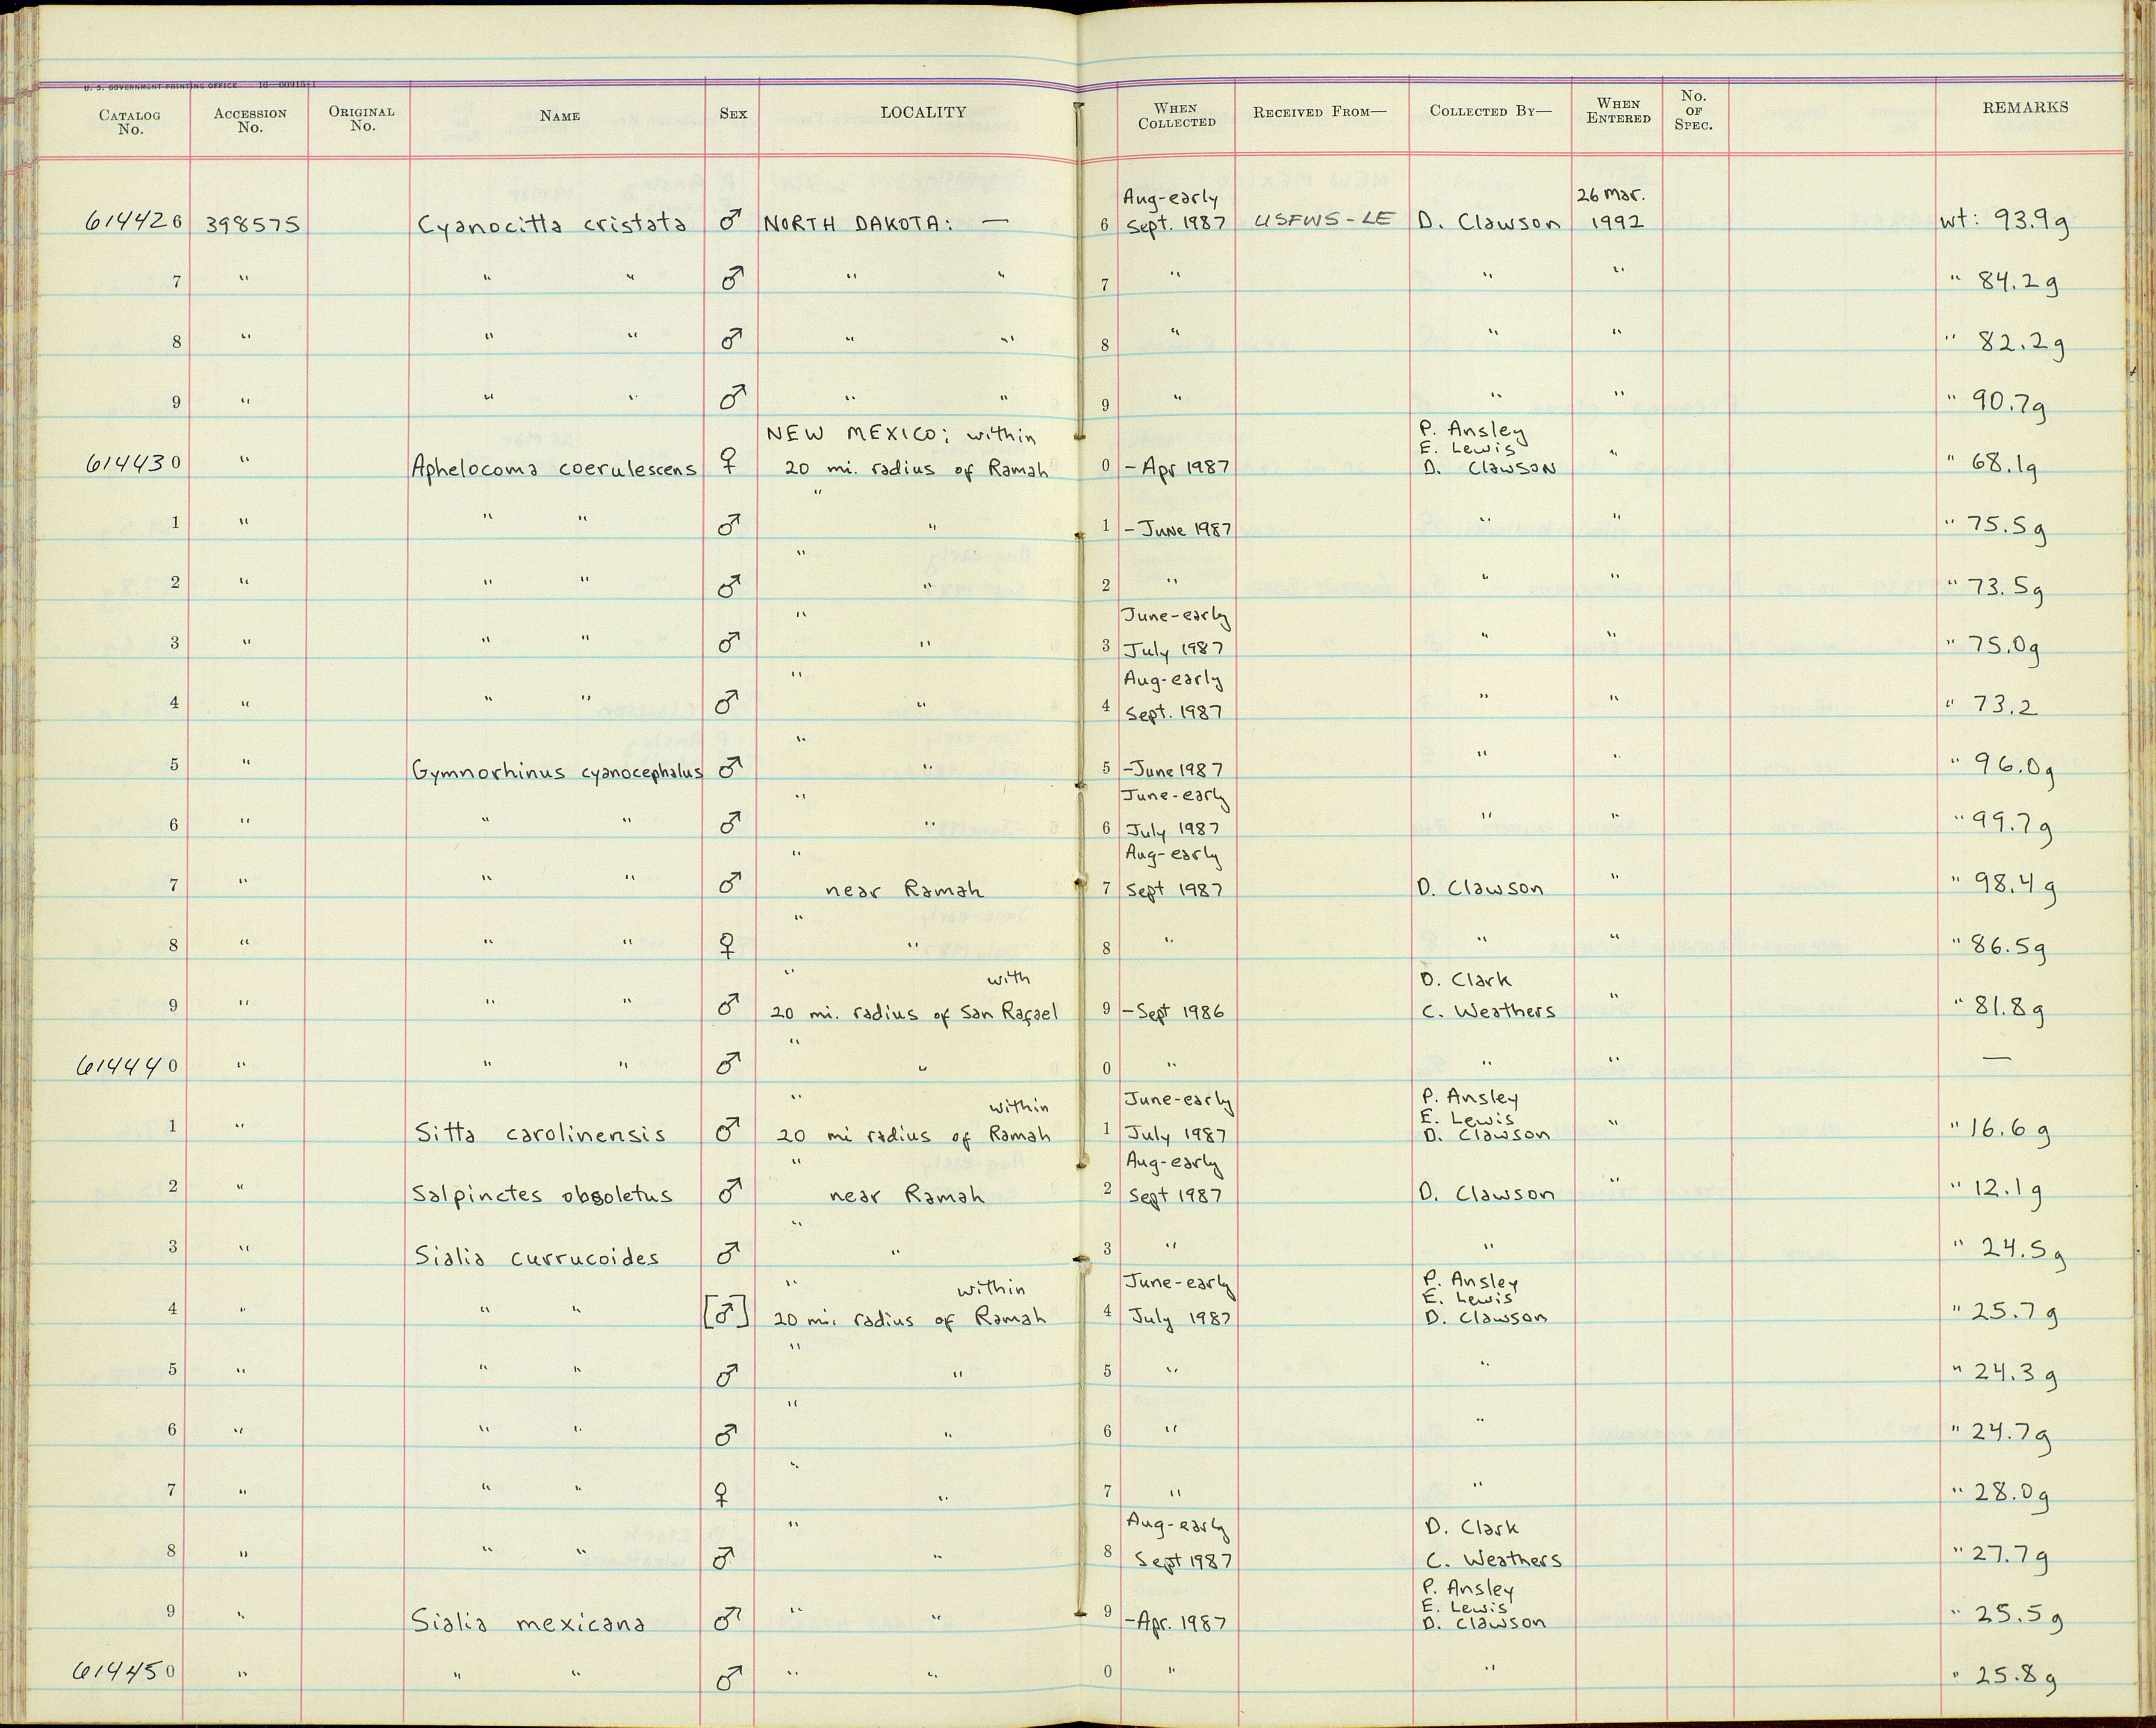 U. S. GOVERNMENT PRINTING OFFICE 16—60915-1
CATALOG No. ACCESSION No. ORIGINAL No. NAME SEX LOCALITY WHEN COLLECTED RECEIVED FROM— COLLECTED BY— WHEN ENTERED No. OF SPEC. REMARKS
Aug-early 26 Mar.
614426 398575 Cyanocitta cristata ♂ NORTH DAKOTA: — 6 Sept. 1987 USFWS-LE D. Clawson 1992 wt: 93.9g
7 " " " ♂ " " 7 " " " " 84.2g
8 " " " ♂ " " 8 " " " " 82.2g
9 " " " ♂ " " 9 " " " " 90.7g
NEW MEXICO; within P. Ansley
E. Lewis
614430 " Aphelocoma coerulescens ♀ 20 mi. radius of Ramah 0 -Apr 1987 D. Clawson " " 68.1g
"
1 " " " ♂ " 1 -June 1987 " " " 75.5g
"
2 " " " ♂ " 2 " " " " 73.5g
" June-early
3 " " " ♂ " 3 July 1987 " " " 75.0g
" Aug-early
4 " " " ♂ " 4 Sept. 1987 " " " 73.2
"
5 " Gymnorhinus cyanocephalus ♂ " 5 -June 1987 " " " 96.0g
" June-early
6 " " " ♂ " 6 July 1987 " " " 99.7g
" Aug-early
7 " " " ♂ near Ramah 7 Sept 1987 D. Clawson " " 98.4g
"
8 " " " ♀ " 8 " " " " 86.5g
" with D. Clark
9 " " " ♂ 20 mi. radius of San Rafael 9 -Sept 1986 C. Weathers " " 81.8g
"
614440 " " " ♂ " 0 " " " —
" within June-early P. Ansley
E. Lewis
1 " Sitta carolinensis ♂ 20 mi radius of Ramah 1 July 1987 D. Clawson " " 16.6g
" Aug-early
2 " Salpinctes obsoletus ♂ near Ramah 2 Sept 1987 D. Clawson " " 12.1g
"
3 " Sialia currucoides ♂ " 3 " " " 24.5g
" within June-early P. Ansley
E. Lewis
4 " " " [♂] 20 mi. radius of Ramah 4 July 1987 D. Clawson " 25.7g
"
5 " " " ♂ " 5 " " " 24.3g
"
6 " " " ♂ " 6 " " " 24.7g
"
7 " " " ♀ " 7 " " " 28.0g
" Aug-early D. Clark
8 " " " ♂ " 8 Sept 1987 C. Weathers " 27.7g
P. Ansley
E. Lewis
9 " Sialia mexicana ♂ " " 9 -Apr. 1987 D. Clawson " 25.5g
614450 " " " ♂ " " 0 " " " 25.8g